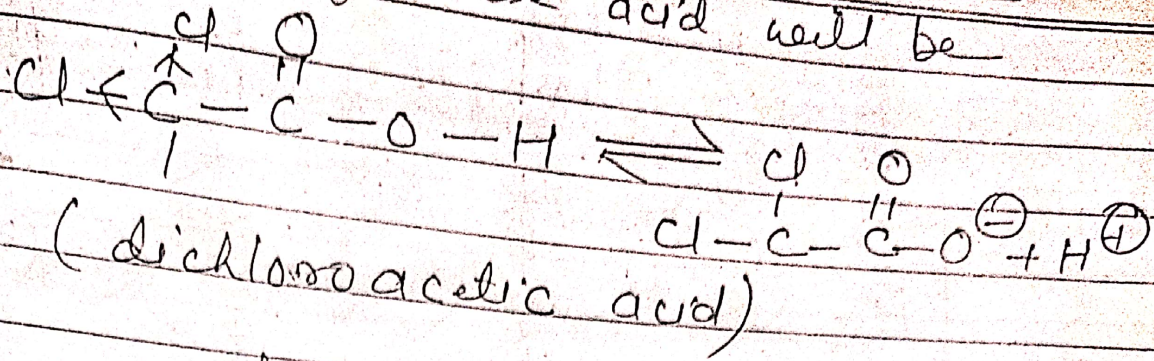 acid will be
Cl O
Cl ← C — C — O — H ⇌ Cl O
Cl — C — C — O⊖ + H⊕
(dichloroacetic acid)